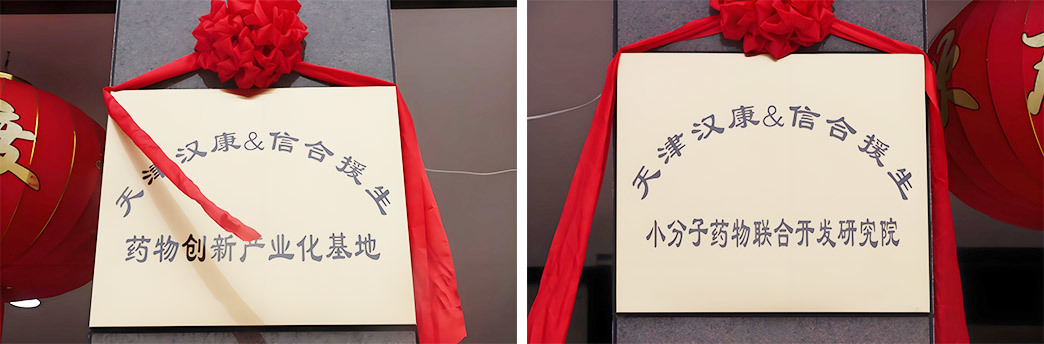 天津汉康&信合援生
药物创新产业化基地
天津汉康&信合援生
小分子药物联合开发研究院